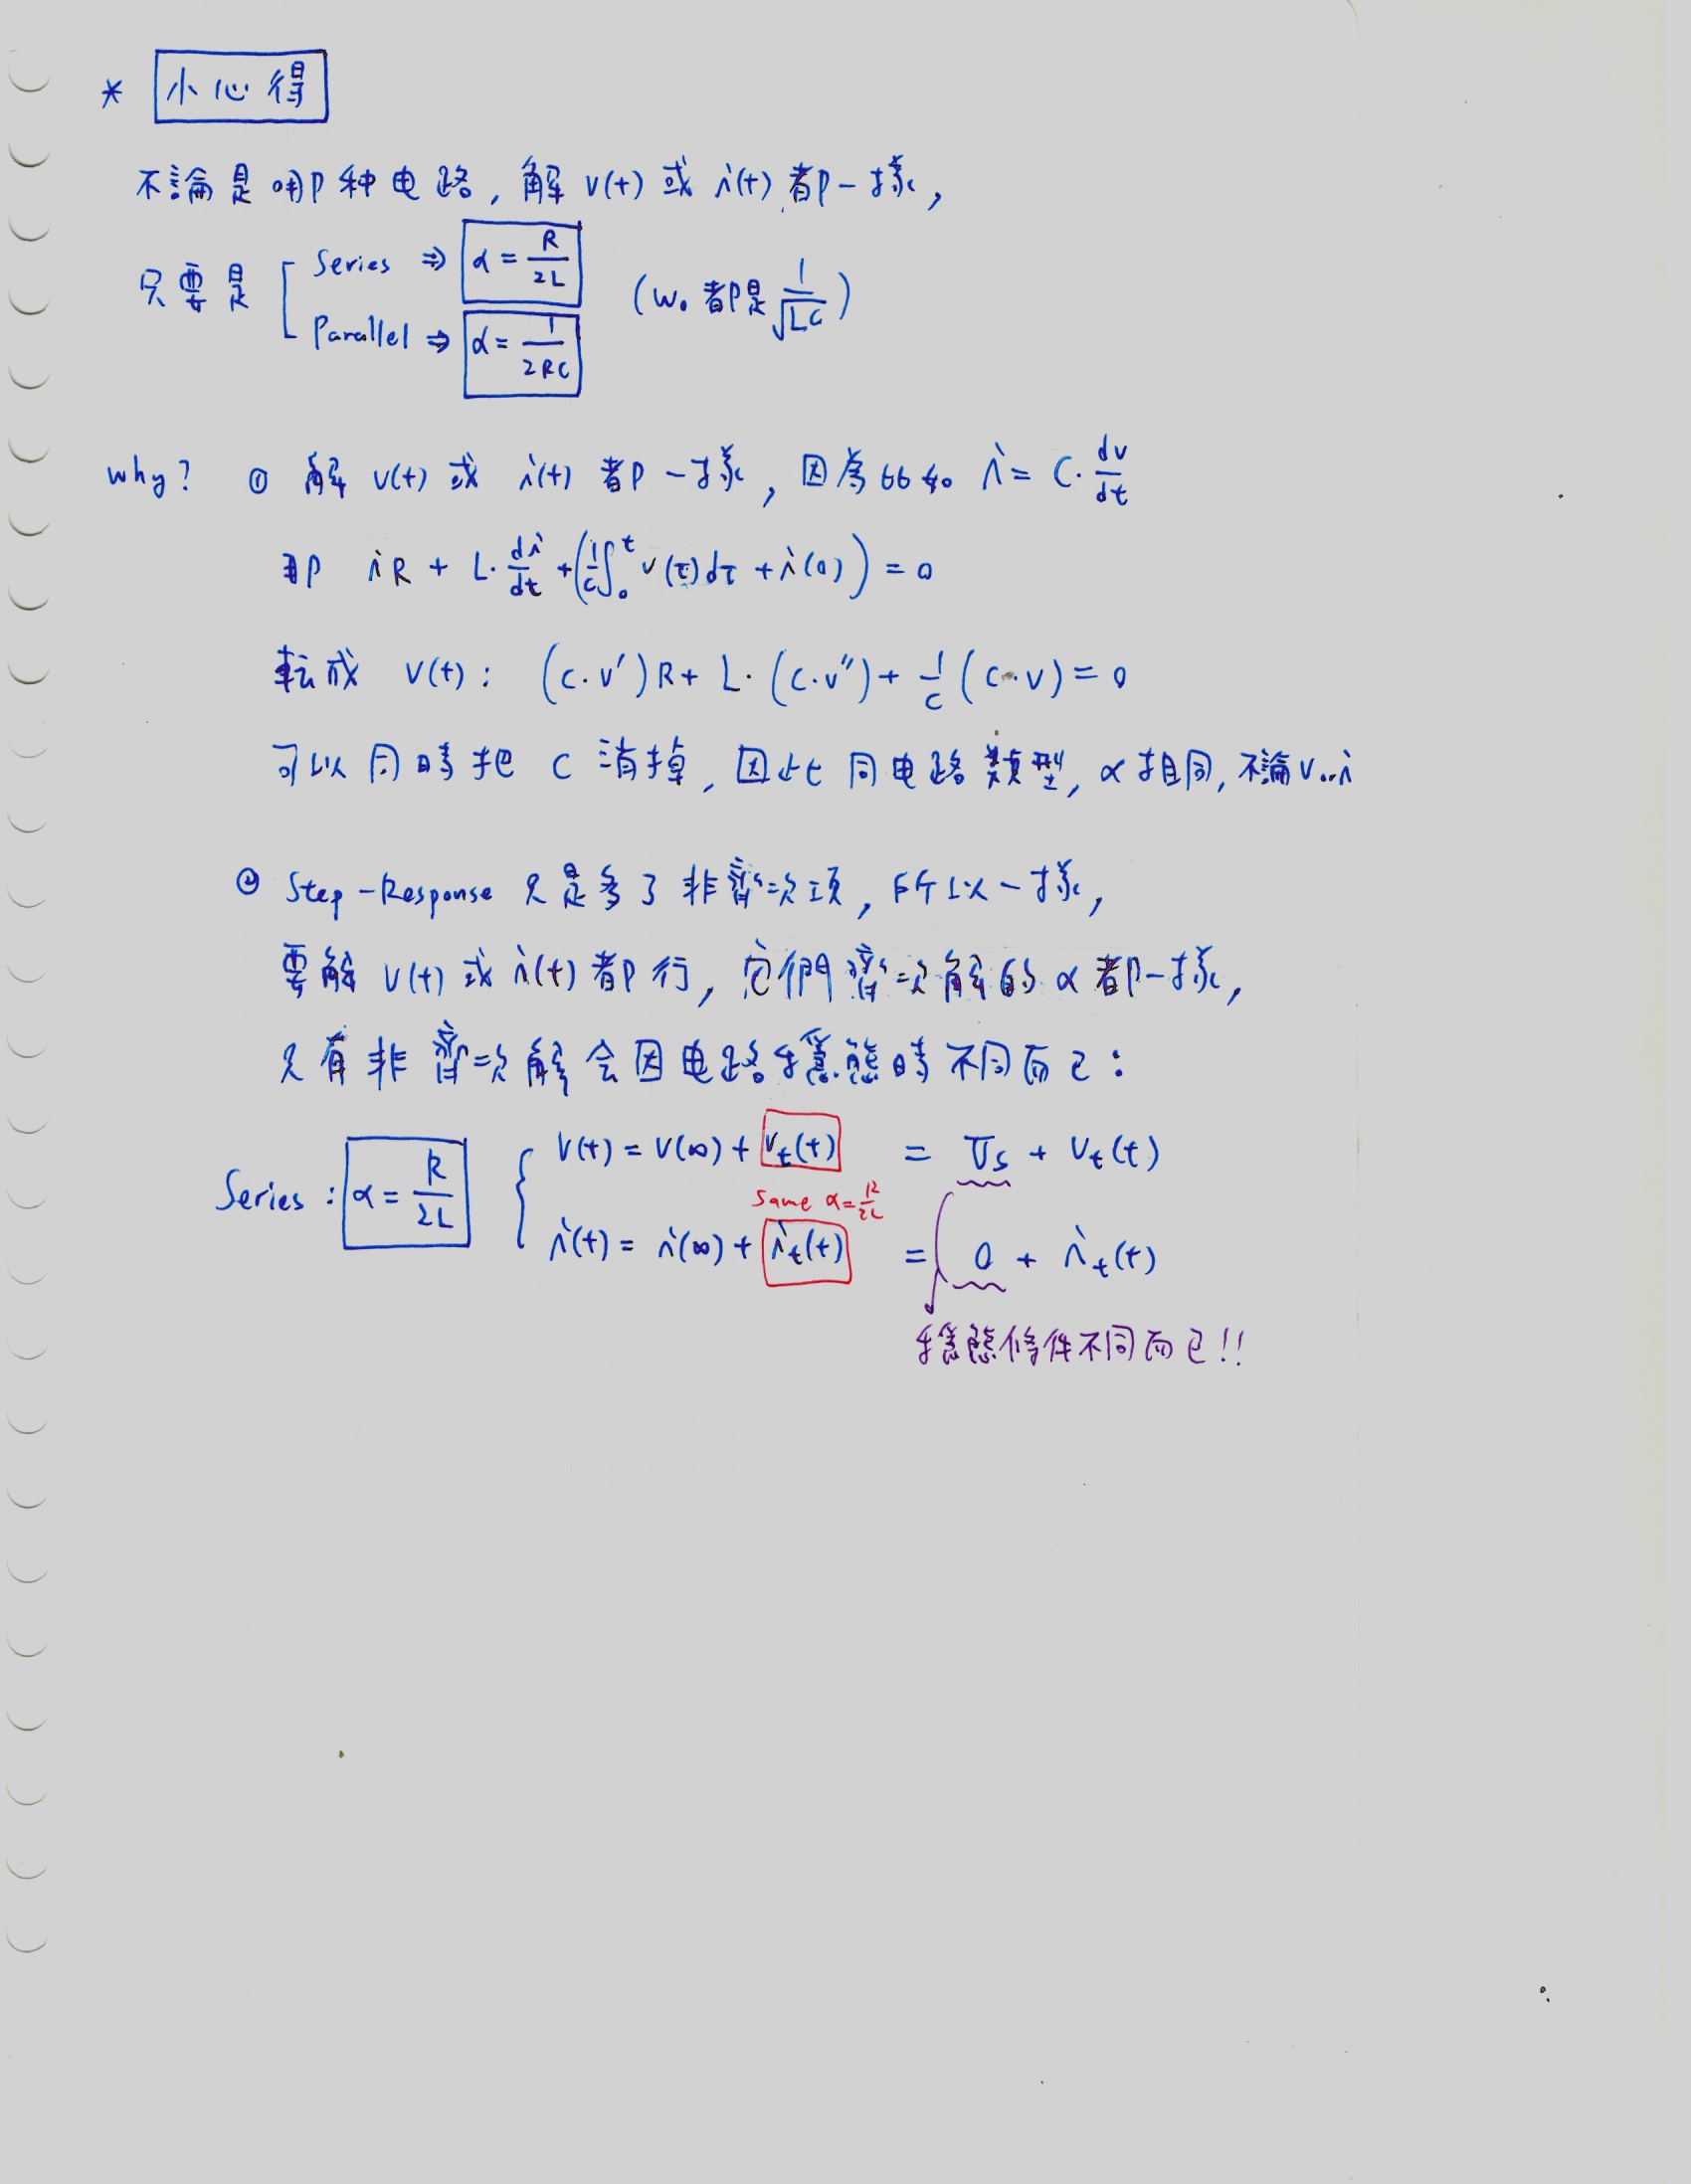 * 小心得
不論是哪种电路, 解 v(t) 或 i(t) 都一樣,
只要是 [ Series ⇒ α = R/2L
Parallel ⇒ α = 1/2RC
(ω₀ 都是 1/√LC)
Why? ① 解 v(t) 或 i(t) 都一樣, 因為比如 i = C·dv/dt
那 iR + L·di/dt + (1/C ∫₀ᵗ v(τ)dτ + i(0)) = 0
転成 v(t): (C·v')R + L·(C·v'') + 1/C (C·v) = 0
可以同時把 C 消掉, 因此同电路類型, α 相同, 不論 v..i
② Step-Response 只是多了非齊次項, 所以一樣,
要解 v(t) 或 i(t) 都行, 它們齊次解的 α 都一樣,
只有非齊次解会因电路穩態時不同而已:
Series : α = R/2L { v(t) = v(∞) + v_t(t) = Vs + v_t(t)
same α = R/2L
i(t) = i(∞) + i_t(t) = 0 + i_t(t)
穩態條件不同而已!!